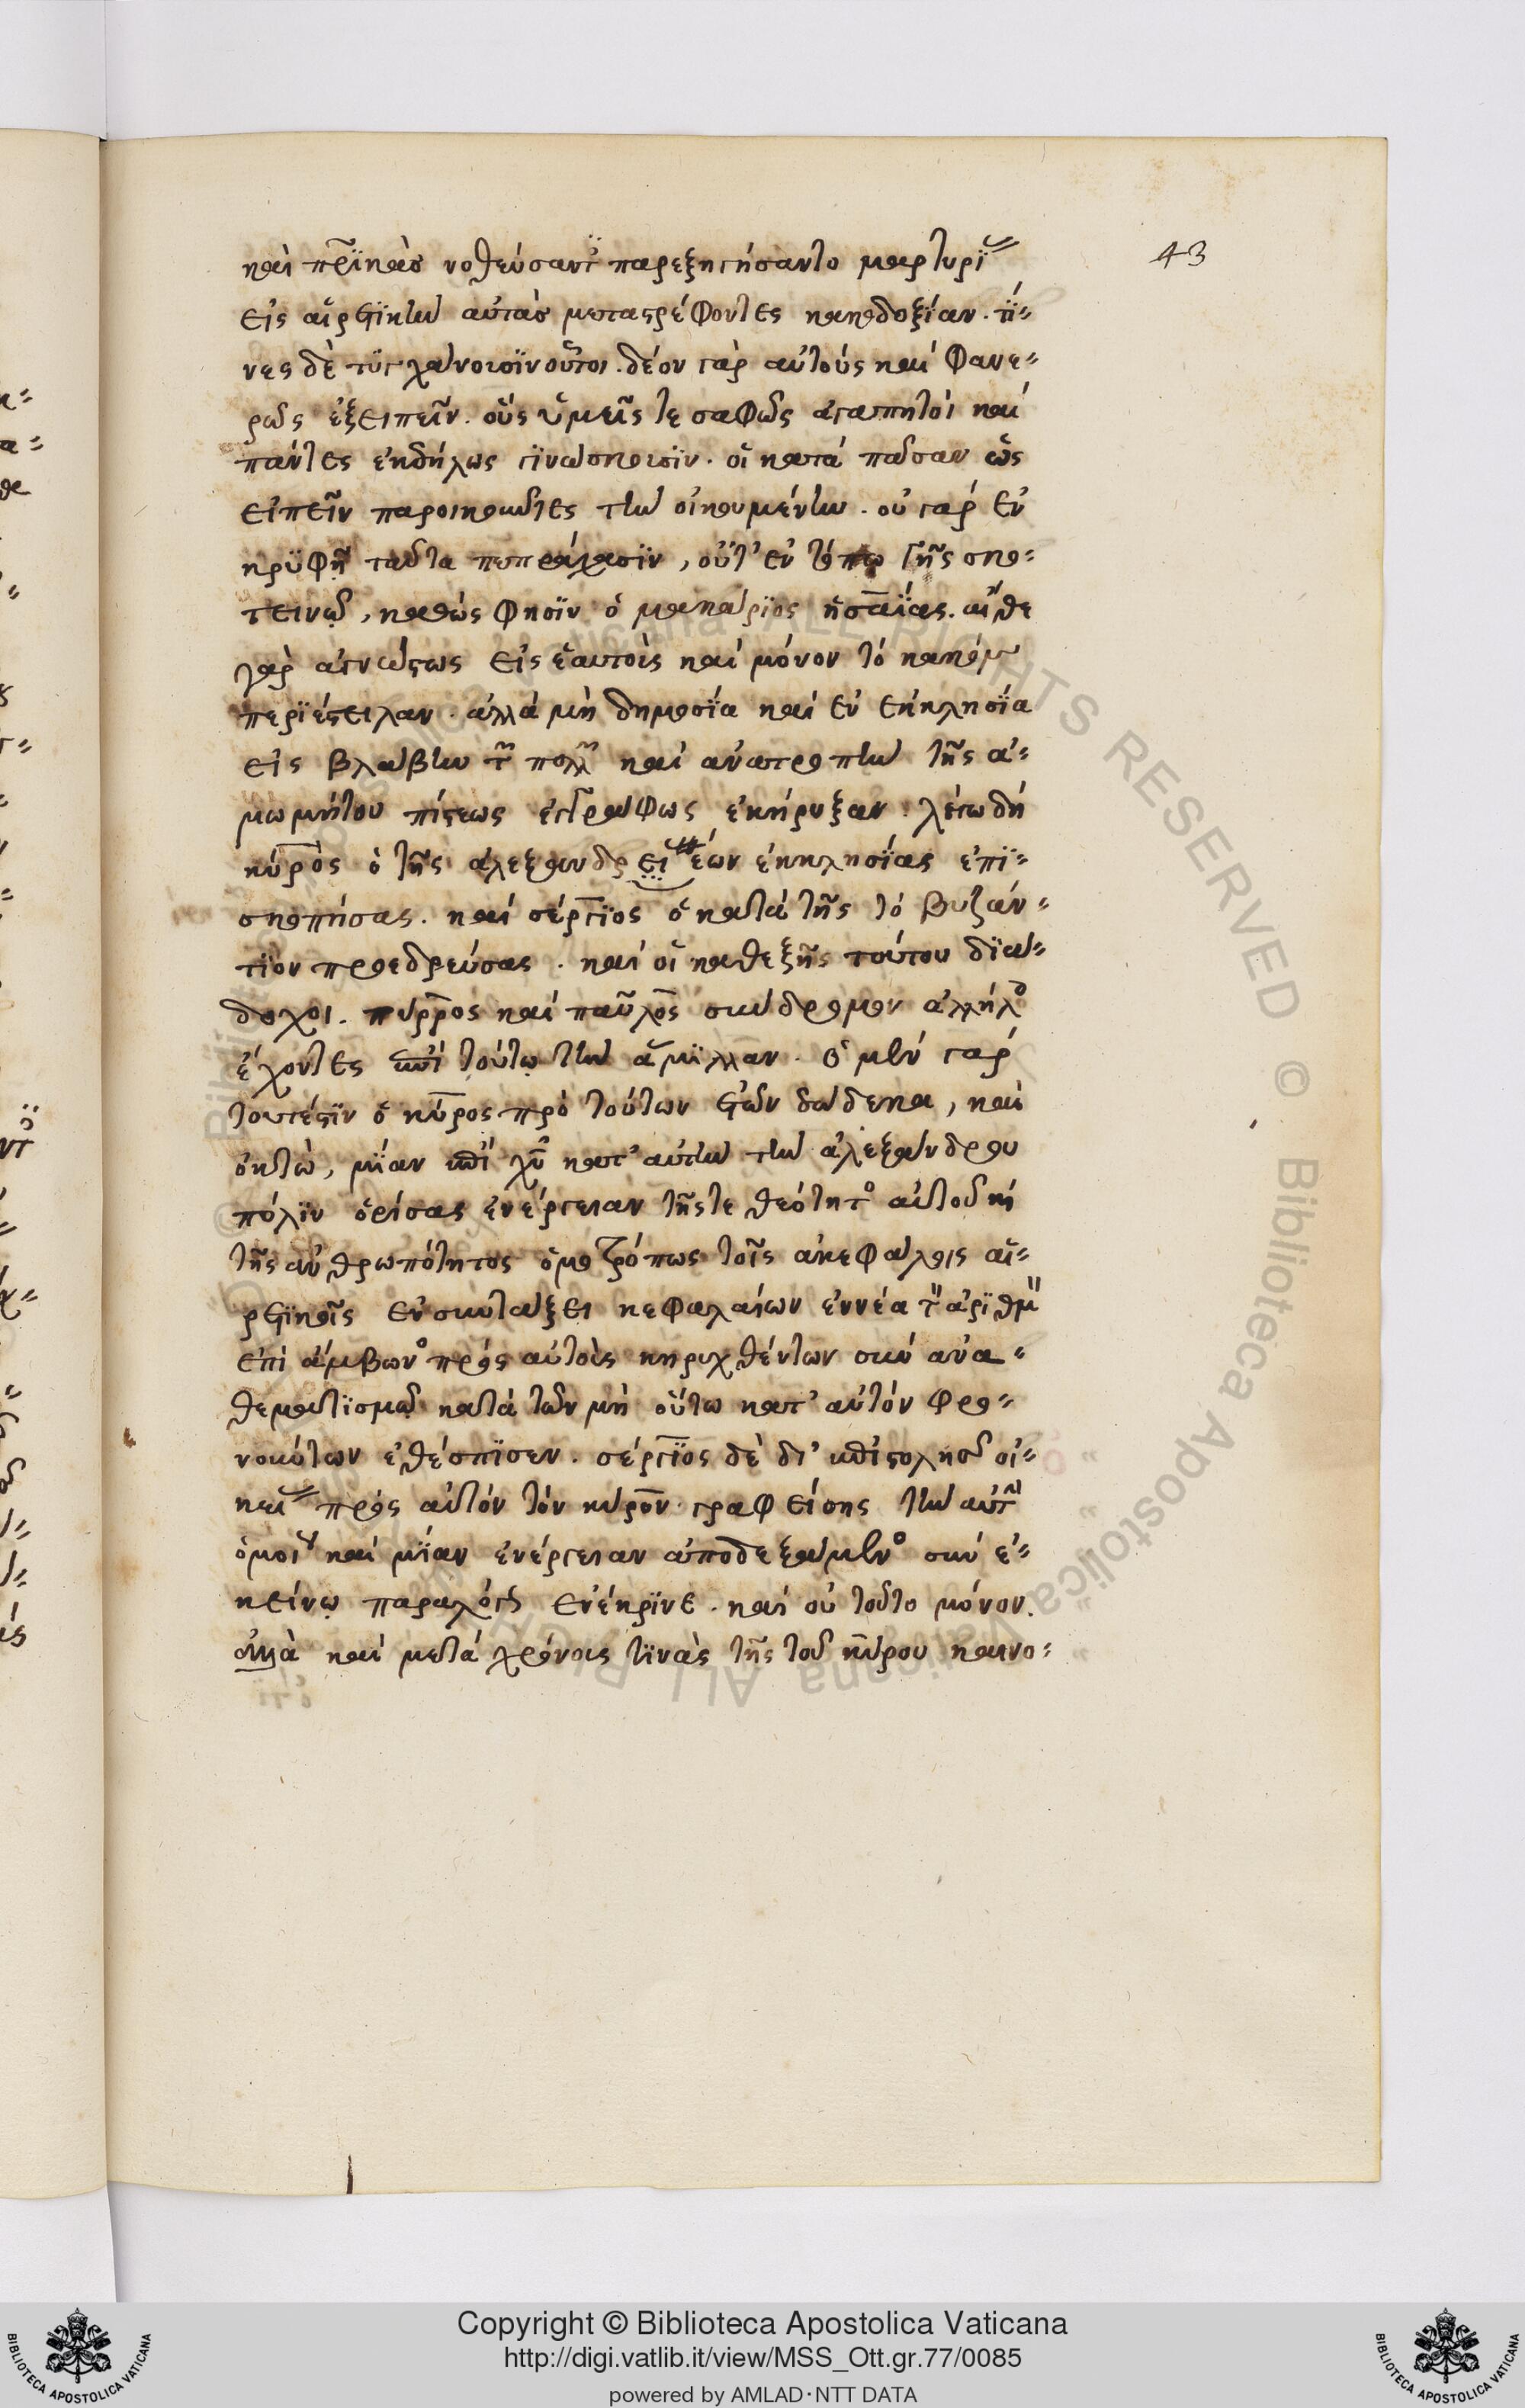 καὶ πρϊκὰς νοθεύσαντ̈ παρεξηγήσαντο μαρτυρϊ
43
εἰς αἱρετϊκὴν αὐτὰς μεταστρέφοντες κακοδοξΐαν. τΐ=
νες δὲ τϋγχάνουσϊν οὗτοι. δέον γὰρ αὐτοὺς καὶ φανε=
ρῶς ἐξειπεῖν. οὓς ὑμεῖς τε σαφῶς ἀγαπητοὶ καὶ
πάντες ἐκδήλως γϊνώσκουσϊν. οἳ κατὰ πᾶσαν ὡς
εἰπεῖν παροικοῦντες τὴν οἰκουμένην. οὐ γὰρ ἐν
κρϋφῆ ταῦτα πεπράχασϊν, οὔτ' ἐν τόπω γῆς σκο=
τεινῶ, καθώς φησϊν ὁ μακάρϊος ἡσαΐας. αἴθε
γὰρ ἀγνώστως εἰς ἑαυτοὺς καὶ μόνον τὸ κακὸν
περϊέστειλαν. ἀλλὰ μὴ δημοσΐα καὶ ἐν ἐκκλησΐα
εἰς βλάβην τ πολλ καὶ ἀνατροπὴν τῆς ἀ=
μωμήτου πίστεως ἐγγράφως ἐκήρυξαν. λέγω δὴ
κῦρος ὁ τῆς ἀλεξανδρειέων ἐκκλησΐας ἐπϊ=
σκοπήσας. καὶ σέργϊος ὁ κατὰ τῆς τὸ βυζάν=
τϊον προεδρεύσας. καὶ οἱ καθεξῆς τούτου δϊά=
δοχοι. πύρρος καὶ παῦλος σύνδρομον ἀλλήλο
ἔχοντες ἐπὶ τούτω τὴν ἅμϊλλαν. ὁ μὲν γὰρ
τουτέστϊν ὁ κῦρος πρὸ τούτων ἐτῶν δώδεκα, καὶ
ὀκτὼ, μΐαν ἐπὶ χυ κατ' αὐτὴν τὴν ἀλεξάνδρου
πόλϊν ὁρίσας ἐνέργειαν τῆς τε θεότητο αὐτοῦ κὶ
τῆς ἀνθρωπότητος ὁμοτρόπως τοῖς ἀκεφάλοις αἱ=
ρετϊκοῖς ἐν συντάξει κεφαλαίων ἐννέα τ ἀρϊθμ
ἐπὶ ἄμβωνο πρὸς αὐτοὺς κηρυχθέντων σὺν ἀνα=
θεματϊσμῶ κατὰ τῶν μὴ οὕτω κατ' αὐτὸν φρο=
νούντων ἐθέσπϊσεν. σέργϊος δὲ δι' ἐπιστολῆς οἰ=
κεί πρὸς αὐτὸν τὸν κῦρον γραφείσης τὴν αὐτ
ὁμοί καὶ μΐαν ἐνέργειαν ἀποδεξάμενο σὺν ἐ=
κείνω παραλόγς ἐνέκρϊνε. καὶ οὐ τοῦτο μόνον.
ἀλλὰ καὶ μετὰ χρόνους τϊνὰς τῆς τοῦ κύρου καινο=
Copyright © Biblioteca Apostolica Vaticana
http://digi.vatlib.it/view/MSS_Ott.gr.77/0085
powered by AMLAD·NTT DATA